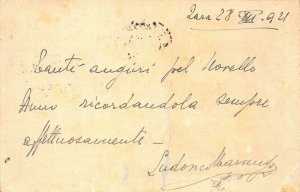 Zara 28 XII. 921
Tanti auguri pel Novello
Anno ricordandola sempre
affettuosamente -